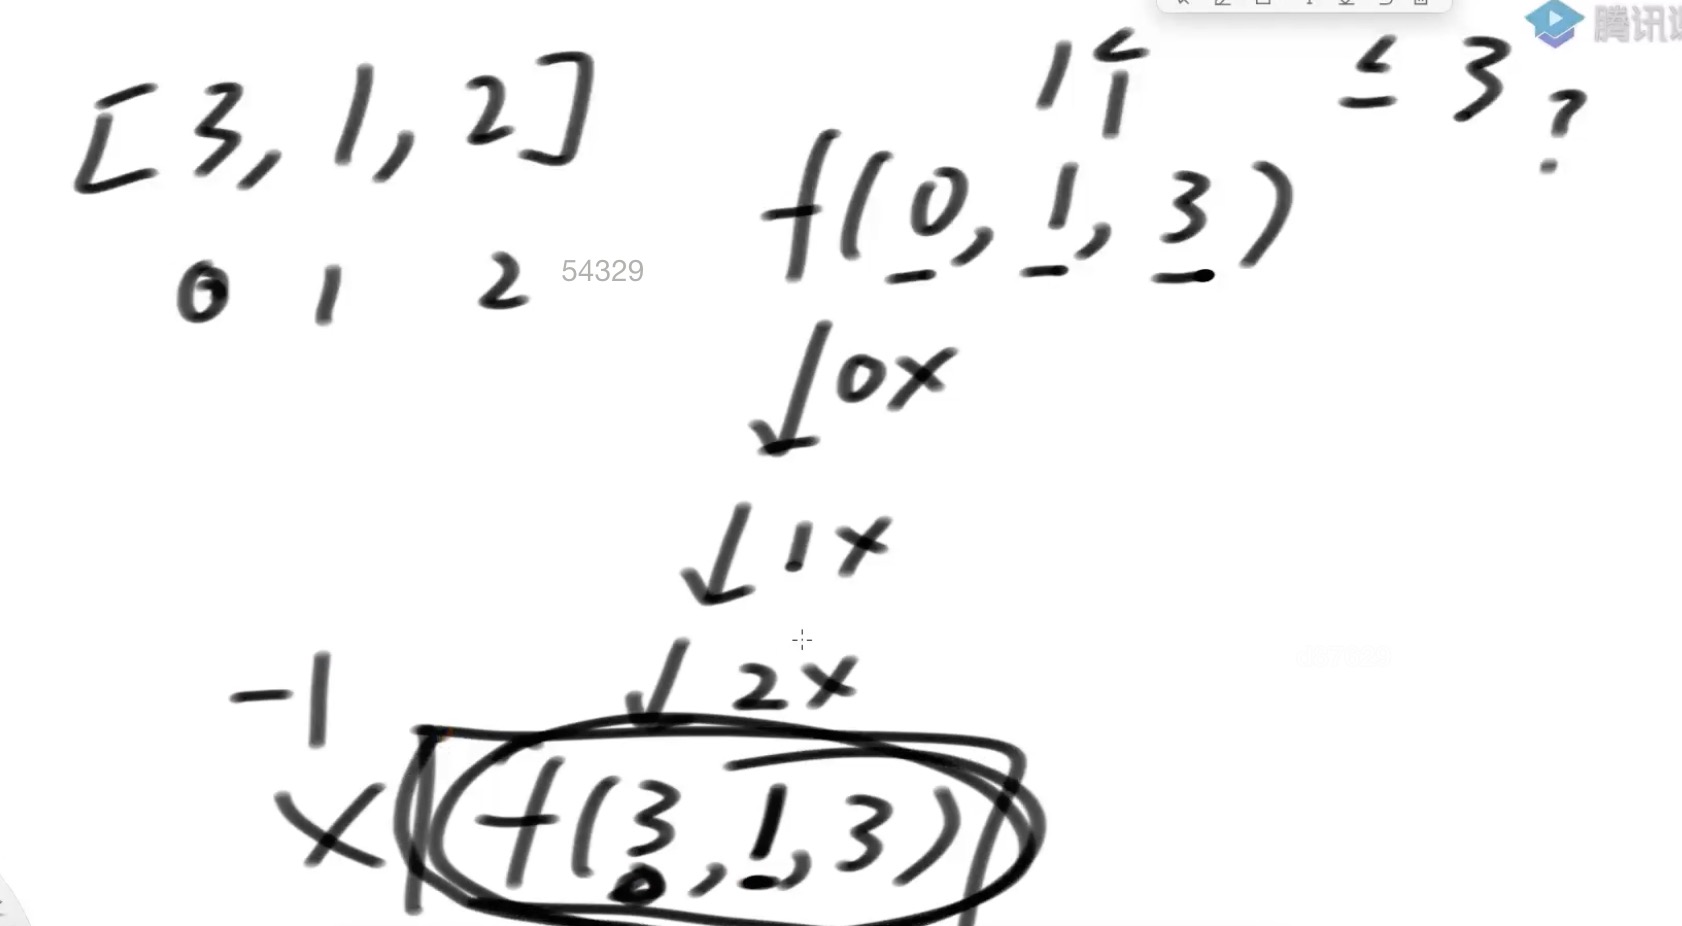 [3, 1, 2]
0 1 2
54329
1个 ≤ 3?
f(0, 1, 3)
↓ 0x
↓ 1x
↓ 2x
-1
x f(3, 1, 3)
0
腾讯